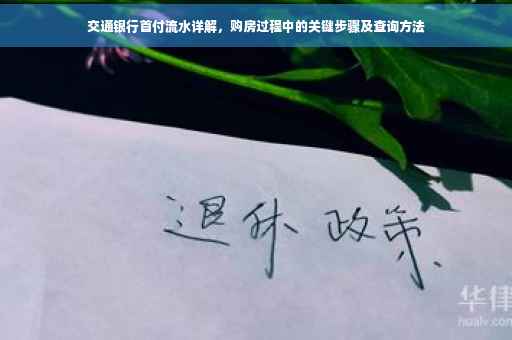 交通银行首付流水详解，购房过程中的关键步骤及查询方法
退休 政策
华律
hualv.com